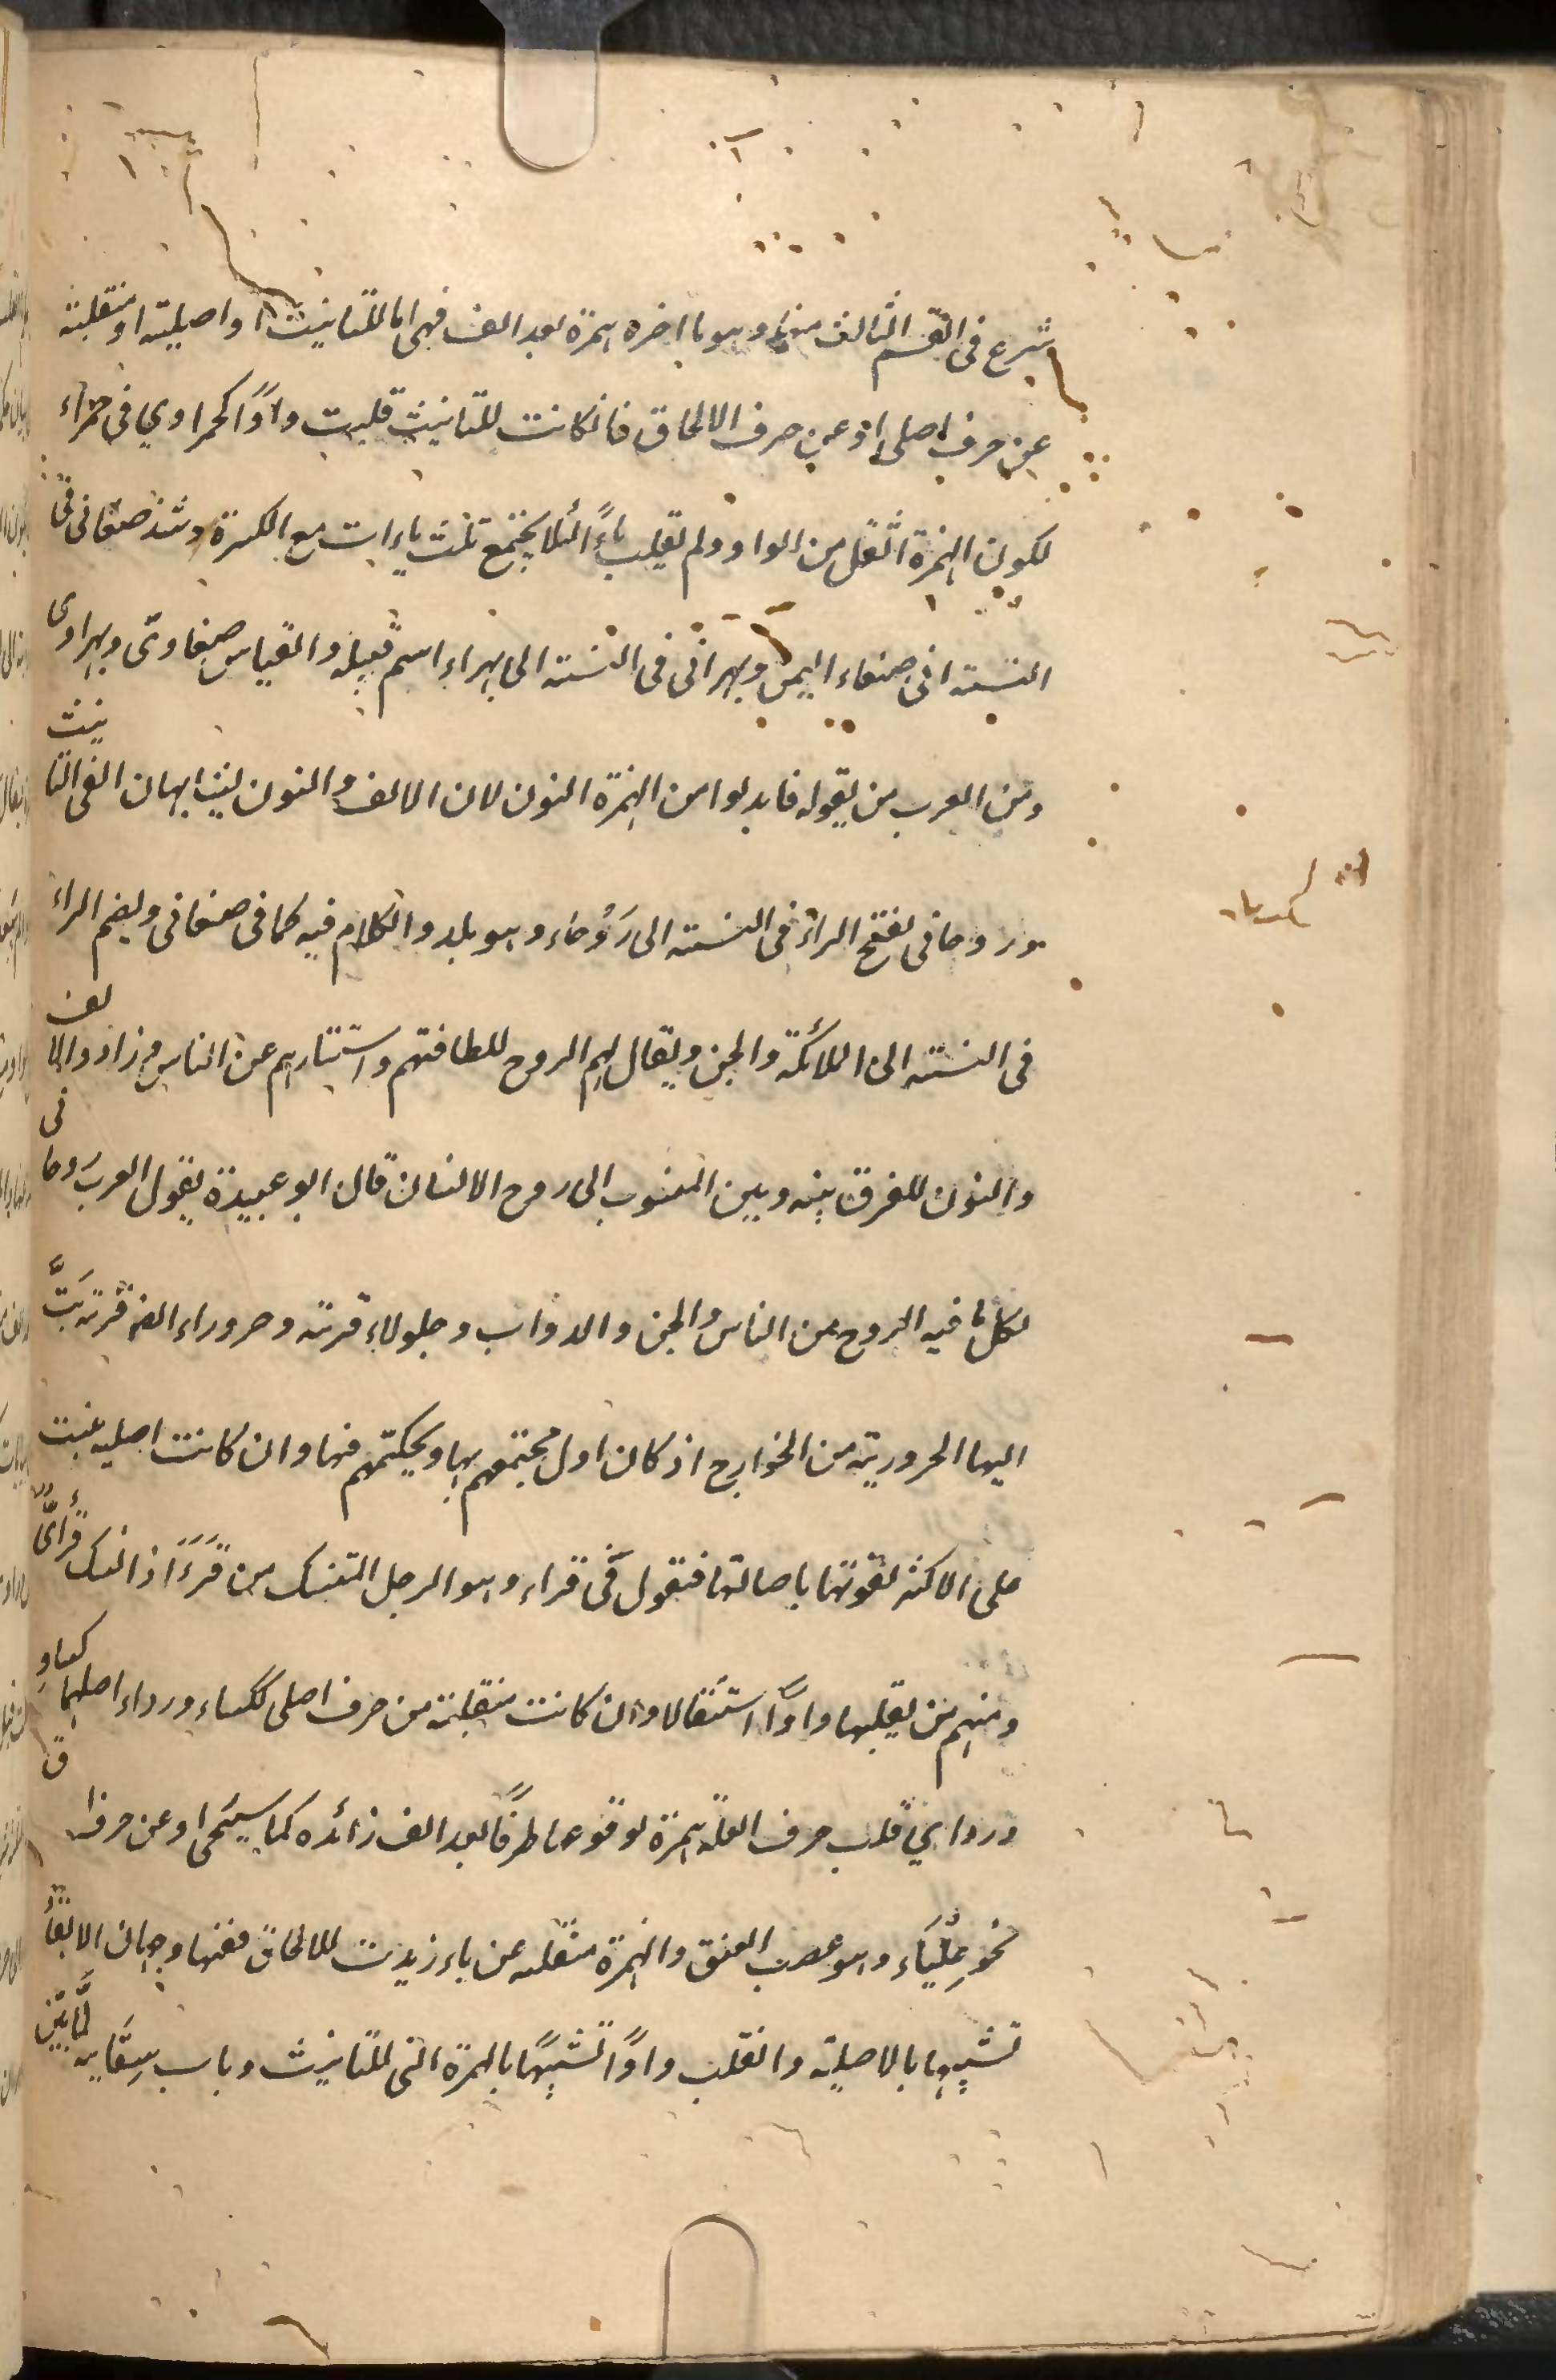 شرع فى القسم الثالث منه وهو ما اخره همزة بعد الف فهى اما للتانيث او اصلية او منقلبة
عن حرف اصلى او عن حرف الالحاق فان كانت للتانيث قلبت واوًا كحمراوي فى حمراء
لكون الهمزة اثقل من الواو ولم تقلب ياءً لئلا يجتمع ثلث ياءات مع الكسرة وشذ صنعانى فى
النسبة الى صنعاء اليمن وبهرانى فى النسبة الى بهراء اسم قبيلة والقياس صنعاوى وبهراوى
ومن العرب من يقوله فابدلوا من الهمزة النون لان الالف والنون يشابهان الفى التانيث
وروحانى بفتح الراء فى النسبة الى رَوْحَاء وهو بلد والكلام فيه كما فى صنعانى وبضم الراء
فى النسبة الى الملائكة والجن ويقال لهم الروح للطافتهم واستتارهم عن الناس فزادوا الالف
والنون للفرق بينه وبين المنسوب الى روح الانسان قال ابو عبيدة يقول العرب روحانى
لكل ما فيه الروح من الناس والجن والدواب وجلولاء قرية وحروراء ايضا قرية نسبت
اليها الحرورية من الخوارج اذ كان اول مجتمعهم بها وتحكيمهم فيها وان كانت اصلية ثبتت
على الاكثر لقوتها باصالتها فتقول فى قراء وهو الرجل المتنسك من قَرَءَ اذا تنسك قرائىّ
ومنهم من يقلبها واوًا استثقالا وان كانت منقلبة من حرف اصلى ككساء ورداء اصلهما كساو
ورداي قلب حرف العلة همزة لوقوعها طرفًا بعد الف زائدة كما سيجئ او عن حرف الالحاق
نحو عِلْبَاء وهو عصب العنق والهمزة منقلبة عن ياء زيدت للالحاق ففيها وجهان الابقاء
تشبيها بالاصلية والقلب واوًا تشبيهًا بالهمزة التى للتانيث وباب سِقَاية